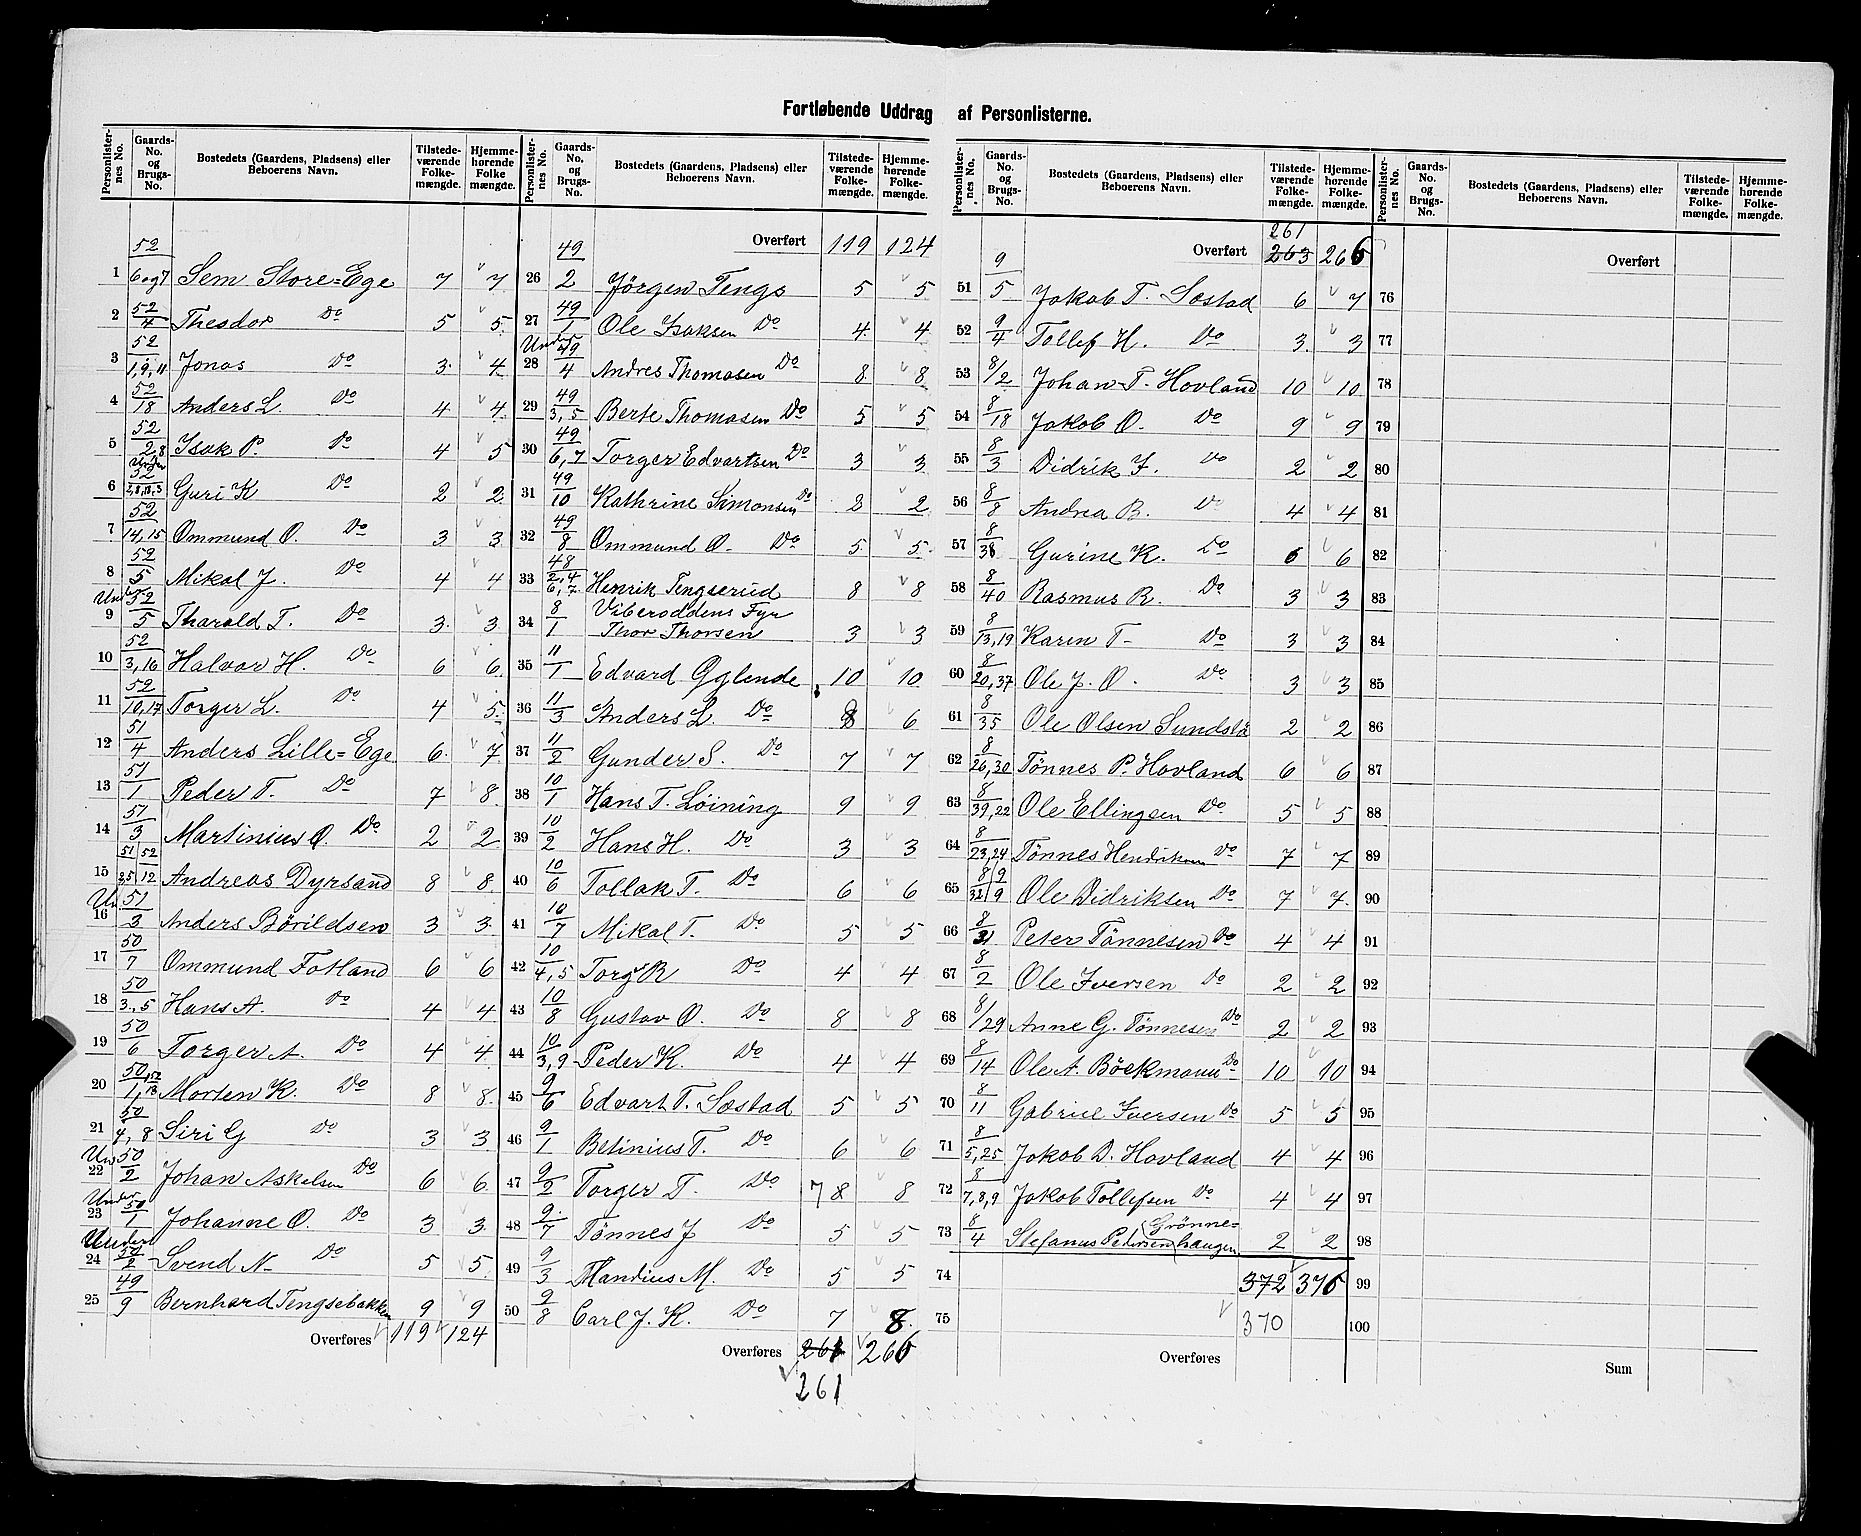 Fortløbende Uddrag af Personlisterne.
Personlister-nes No. | Gaards-No. og Brugs-No. | Bostedets (Gaardens, Pladsens) eller Beboerens Navn. | Tilstede-værende Folke-mængde. | Hjemme-hørende Folke mængde.
1 52/6og7 Sem Store=Ege 7 7
2 52/4 Theodor Do 5 5
3 52/1,9,11 Jonas Do 3 4
4 52/18 Anders L. Do 4 4
5 52/2,8 Isak P. Do 4 5
6 Under 52/2,8,18,3 Guri K Do 2 2
7 52/14,15 Ommund O. Do 3 3
8 52/5 Mikal J. Do 4 4
9 Under 52/5 Tharald T. Do 3 3
10 52/3,16 Halvor H. Do 6 6
11 52/10,17 Torger L. Do 4 5
12 51/4 Anders Lille=Ege 6 7
13 51/1 Peder T. Do 7 8
14 51/3 Martinius O. Do 2 2
15 51/2,5 52/12 Andreas Dyrsand 8 8
16 Un 51/3 Anders Börildsen 3 3
17 50/7 Ommund Fotland 6 6
18 50/3,5 Hans A. Do 4 4
19 50/6 Torger A. Do 4 4
20 50/1, 52/13 Morten K. Do 8 8
21 50/4,8 Siri G Do 3 3
22 Un 50/2 Johan Askelsen Do 6 6
23 Under 50/1 Johanne O. Do 3 3
24 Under 50/2 Svend N Do 5 5
25 49/9 Bernhard Tengsebakken 9 9
Overføres 119 124
Personlister-nes No. | Gaards-No. og Brugs-No. | Bostedets (Gaardens, Pladsens) eller Beboerens Navn. | Tilstede-værende Folke-mængde. | Hjemme-hørende Folke-mængde.
Overført 119 124
26 49/2 Jörgen Tengs 5 5
27 49/1 Ole Isaksen Do 4 4
28 Under 49/4 Andres Thomasen Do 8 8
29 49/3,5 Berte Thomasen Do 5 5
30 49/6,7 Torger Edvartsen Do 3 3
31 49/10 Kathrine Simonsen Do 2 2
32 49/8 Ommund O. Do 5 5
33 48/2,4 6,7 Henrik Tengserud 8 8
34 8/1 Viberoddens Fyr
Thor Thorsen 3 3
35 11/1 Edvard Gylende 10 10
36 11/3 Anders L. Do 8 6
37 11/2 Gunder S. Do 7 7
38 10/1 Hans T. Löining 9 9
39 10/2 Hans H. Do 3 3
40 10/6 Tollak T. Do 6 6
41 10/7 Mikal T. Do 5 5
42 10/4,5 Torg R Do 4 4
43 10/8 Gustav O. Do 8 8
44 10/3,9 Peder K. Do 4 4
45 9/6 Edvart T. Sæstad 5 5
46 9/1 Betinius T. Do 6 6
47 9/2 Torger T. Do 7 8 8
48 9/7 Tönnes J Do 5 5
49 9/3 Mandius M. Do 5 5
50 9/8 Carl J. K. Do 7 8
Overføres 263 266
261
Personlister-nes No. | Gaards-No. og Brugs-No. | Bostedets (Gaardens, Pladsens) eller Beboerens Navn. | Tilstede-værende Folke-mængde. | Hjemme-hørende Folke-mængde.
261
Overført 263 266
51 9/5 Jakob T. Sæstad 6 7
52 9/4 Tollef H. Do 3 3
53 8/2 Johan T. Hovland 10 10
54 8/18 Jakob O. Do 9 9
55 8/3 Didrik J. Do 2 2
56 8/8 Andrea B. Do 4 4
57 8/38 Gurine K. Do 6 6
58 8/40 Rasmus R. Do 3 3
59 8/13,19 Karen T Do 3 3
60 8/20,37 Ole J. O. Do 3 3
61 8/35 Ole Olsen Sundstö 2 2
62 8/26,30 Tönnes P. Hovland 6 6
63 8/39,22 Ole Ellingsen Do 5 5
64 8/23,24 Tönnes Henriksen Do 7 7
65 8/32 9/9 Ole Didriksen Do 7 7
66 8/31 Peter Tönnesen Do 4 4
67 8/2 Ole Iversen Do 2 2
68 8/29 Anne G. Tönnesen Do 2 2
69 8/14 Ole A. Böckmann Do 10 10
70 8/11 Gabriel Iversen Do 5 5
71 8/5,25 Jakob D. Hovland 4 4
72 8/7,8,9 Jakob Tollefsen Do 4 4
73 8/4 Stefanus Pedersen Grönne=haugen 2 2
74 372 376
75 370
Overføres
Personlister-nes No. | Gaards-No. og Brugs-No. | Bostedets (Gaardens, Pladsens) eller Beboerens Navn. | Tilstede-værende Folke-mængde. | Hjemme-hørende Folke-mængde.
Overført
76
77
78
79
80
81
82
83
84
85
86
87
88
89
90
91
92
93
94
95
96
97
98
99
100
Sum